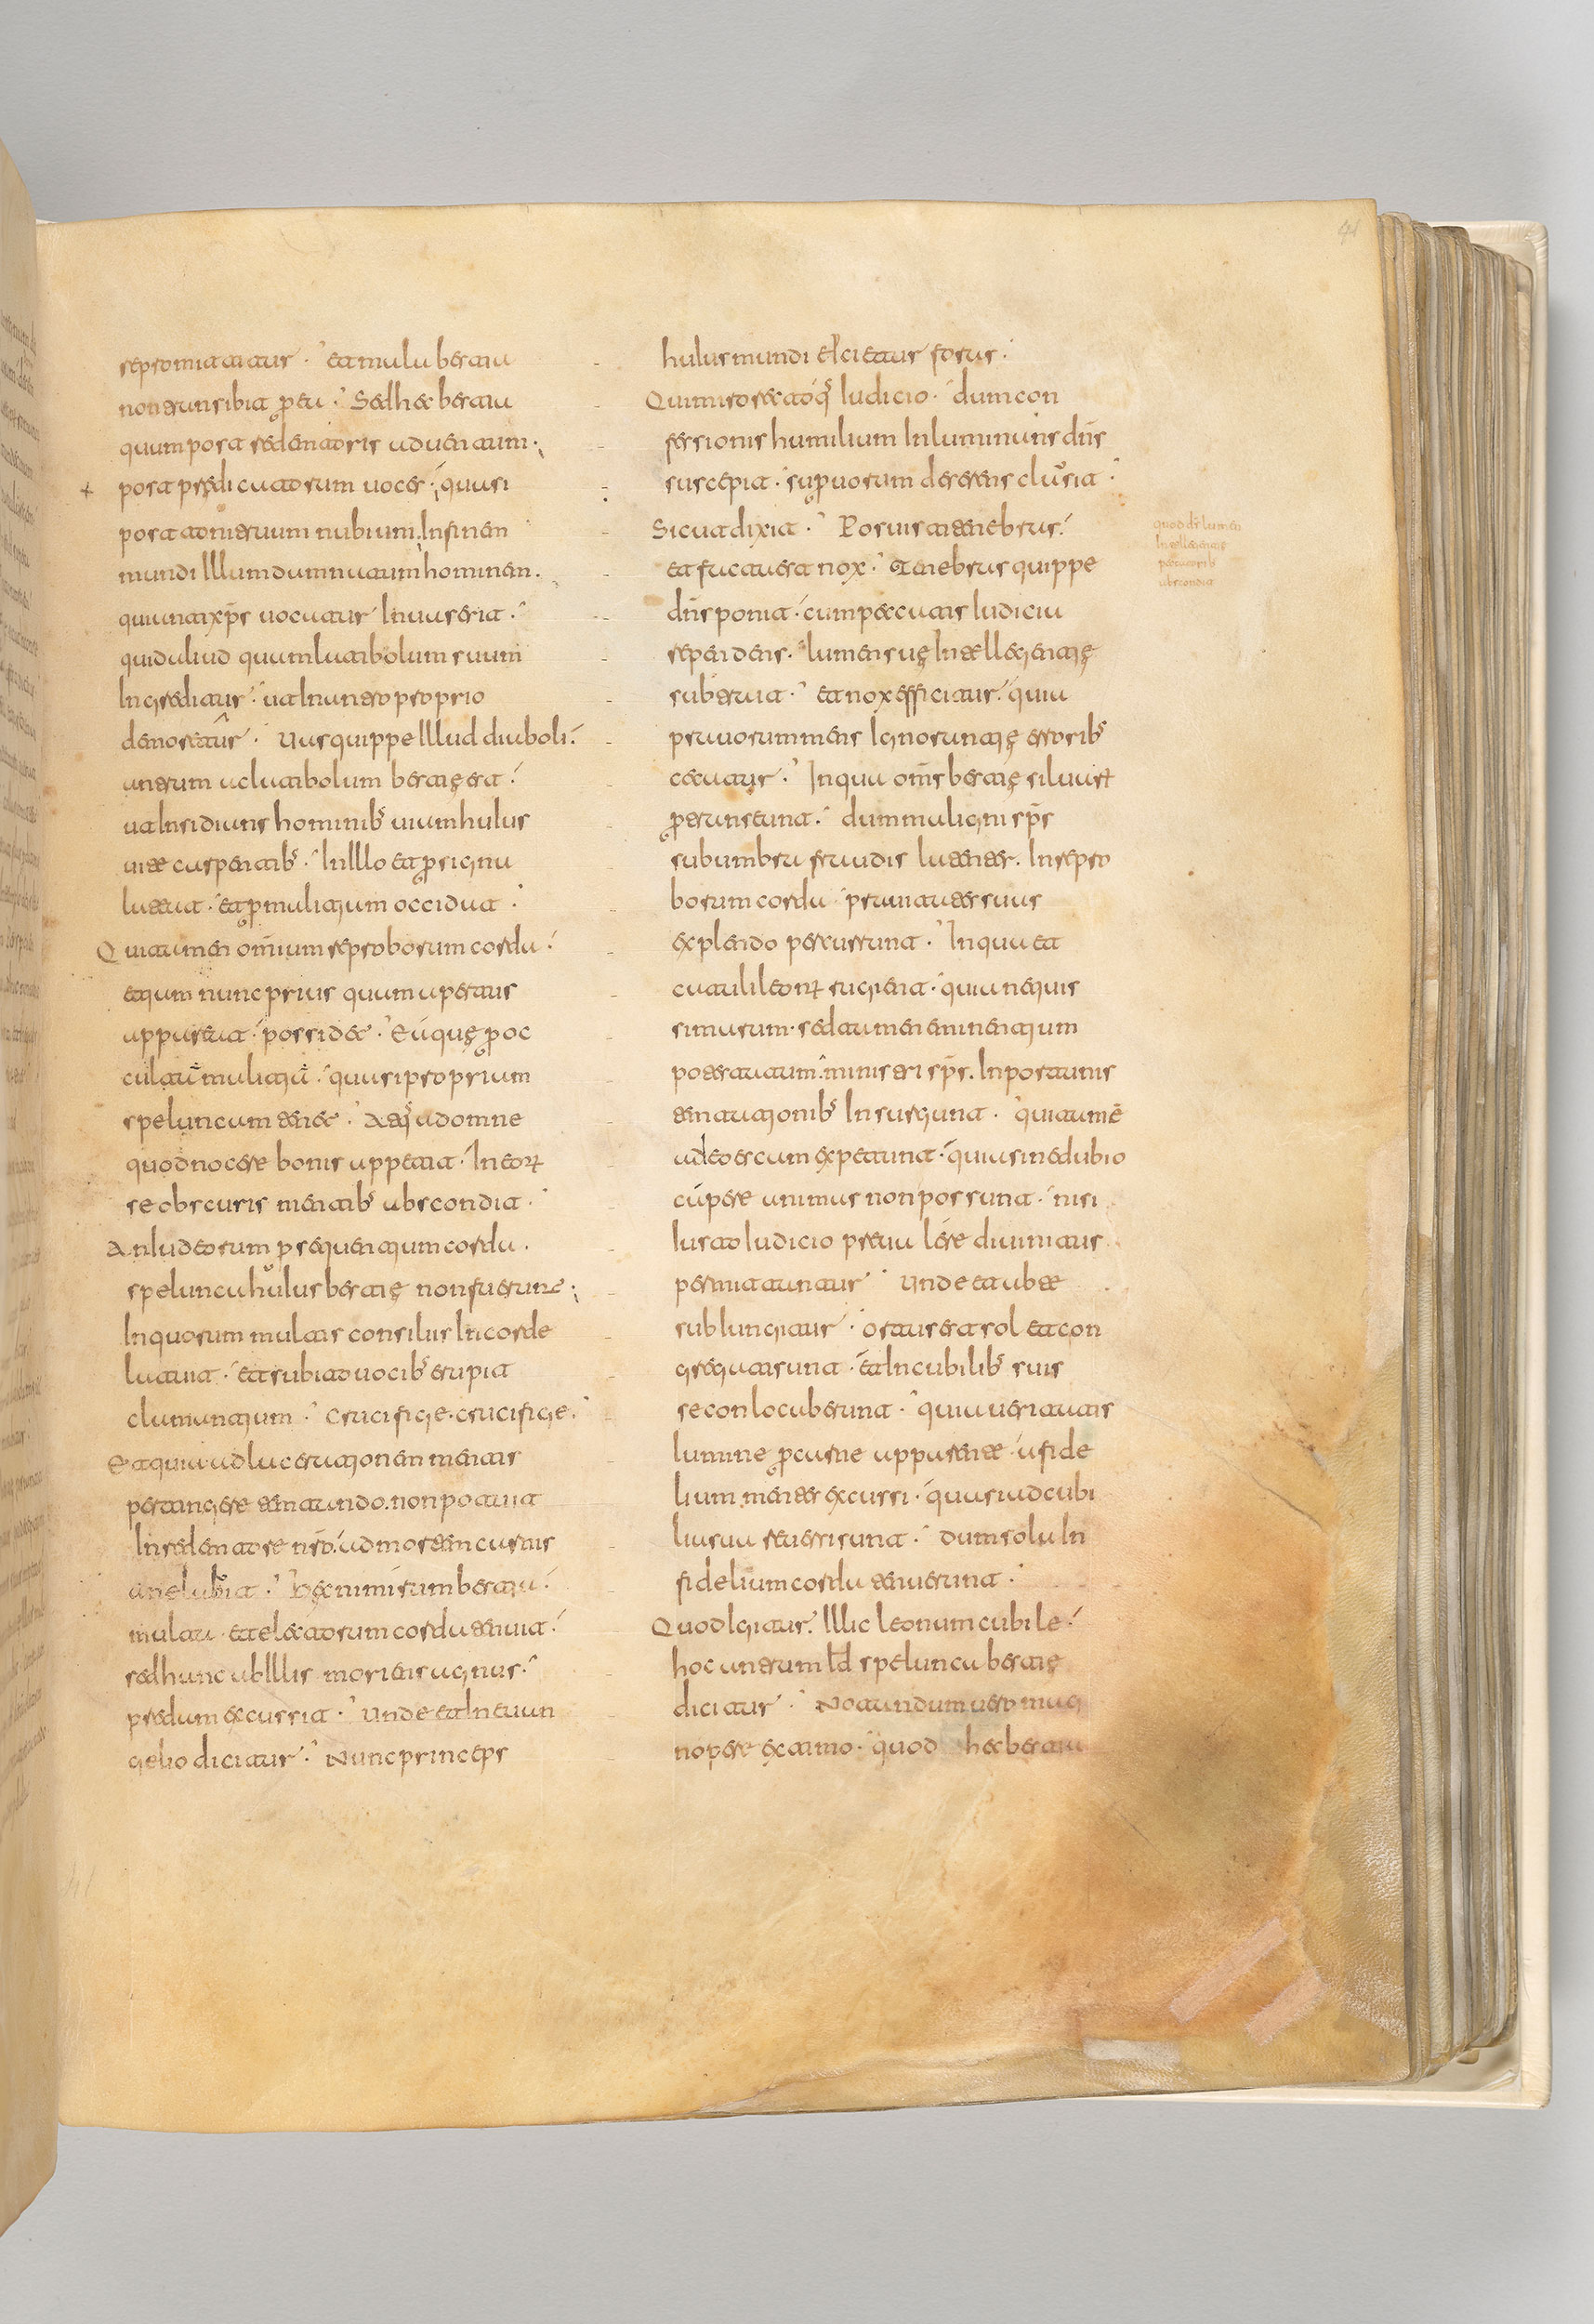 repromittitur . et mala bestia
non transibit ꝑ ea . Sed hec bestia
quam post redemtoris aduentum .
post predicatorum uoces . quasi
post tonitruum nubium . In finem
mundi Illum damnatum hominem .
qui antixp̄s uocatur Inuaserit .
quid aliud quam latibolum suum
Ingreditur . ut In antro proprio
demoretur . Uas quippe Illud diaboli .
antrum ac latibolum bestię est .
ut Insidians hominibs uiam huius
uite carpentibs . In Illo et ꝑ signa
lateat . et ꝑ malitiam occidat .
Qui tamen om̄ium reproborum corda .
etiam nunc prius quam apertus
appareat . possidet . Eaque ꝑ oc
cultā malitiā . quasi proprium
speluncam tenet . Atqs ad omne
quod nocere bonis appetit . In eorꝝ
se obscuris mentibs abscondit .
An Iudeorum ꝑsequentium corda .
spelunca huius bestię non fuerunt .
In quorum multis consiliis In corde
latuit . et subito uocibs erupit
clamantium . Crucifige . crucifige .
Et quia ad lacerationem mentis
pertingere temtando . non potuit
In redemtore nsr̄o . ad mortem carnis
anelabit . Hec nimirum bestia .
multa et electorum corda tenuit .
sed hanc ab Illis moriens agnus .
predam excussit . Unde et In euan
gelio dicitur . Nunc princeps
huius mundi eicietur foras .
Qui miro rectoqs Iudicio . dum con
fessiones humilium Inluminans dn̄s
suscepit . suꝑuorum deserens clausit .
Sicut dixit . Posuisti tenebras .
et facta est nox . Tenebras quippe
dn̄s ponit . cum peccatis Iudicia
rependens . lumen suę Intellegentię
subtrait . et nox efficitur . quia
prauorum mens Ignorantię erroribs
cecatur . In qua om̄s bestię siluarꝝ
ꝑtranseunt . dum maligni sp̄s
sub umbra fraudis latentes . In repro
borum corda prauitates suas
explendo pertransunt . In qua et
catuli leonꝝ rugient . quia nequis
simarum . sed tamen eminentium
potestatum . ministri sp̄s . Inportunis
temtationibs Insurgunt . qui tamē
ad eo escam expetunt . quia sine dubio
capere animas non possunt . nisi
Iusto Iudicio preualere diuinitus
permittantur . Unde et ubte
subIungitur . ortus est sol et con
gregati sunt . et In cubilibs suis
se conlocaberunt . quia ueritatis
lumine ꝑ carne apparente . a fide
lium mentes excussi . quasi ad cubi
lia sua reuersi sunt . dum sola In
fidelium corda tenuerunt .
Quod Igitur . Illic leonum cubile .
hoc antrum Id spelunca bestię
dicitur . Notandum uero mag
nopere extimo . quod hec bestia
quod dr̄ lumen
Intellegentię
peccatoribs
abscondit
41